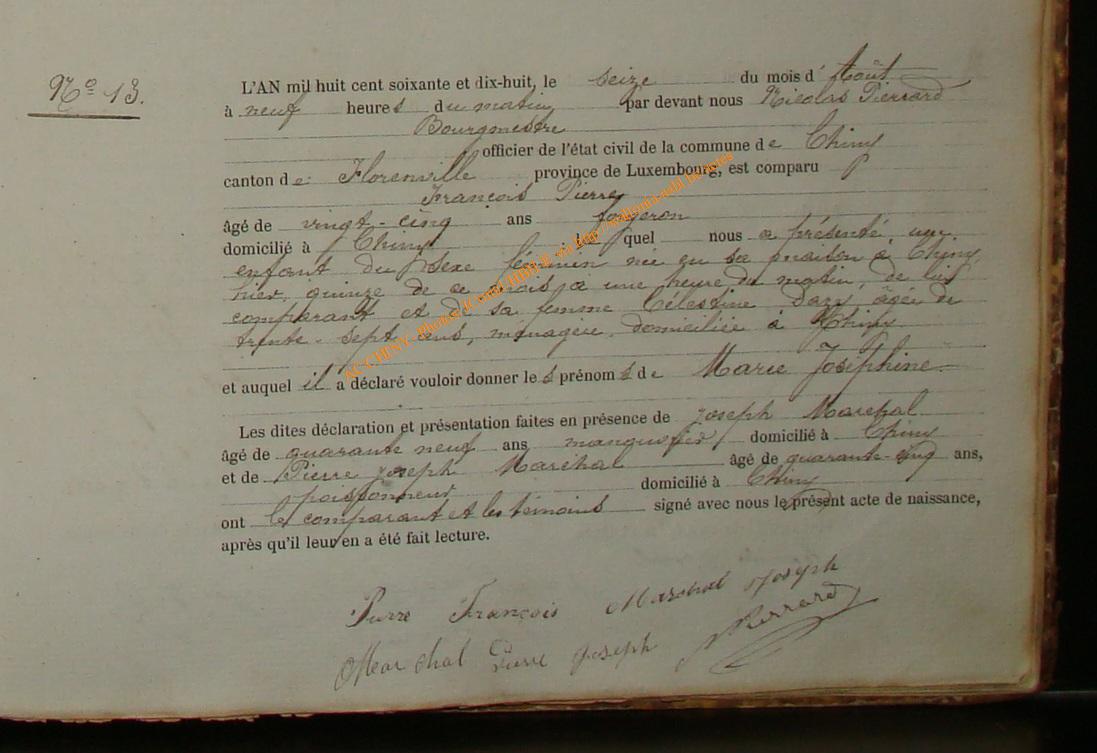 No 13.
L'AN mil huit cent soixante et dix-huit, le seize du mois d'Août
à neuf heures du matin par devant nous Nicolas Pierrard
Bourgmestre
officier de l'état civil de la commune de Chiny
canton de Florenville province de Luxembourg, est comparu
François Pierre
âgé de vingt-cinq ans forgeron
domicilié à Chiny lequel nous a présenté un
enfant du sexe féminin née en sa maison à Chiny
hier, quinze de ce mois à une heure du matin, de lui
comparant et de sa femme Célestine Dazy, âgée de
trente-sept ans, ménagère, domiciliée à Chiny
et auquel il a déclaré vouloir donner les prénoms de Marie Joséphine
Les dites déclaration et présentation faites en présence de Joseph Maréchal
âgé de quarante neuf ans domicilié à Chiny
et de Pierre Joseph Maréchal âgé de quarante-cinq ans,
domicilié à Chiny
ont le comparant et les témoins signé avec nous le présent acte de naissance,
après qu'il leur en a été fait lecture.
Pierre François Marchal Joseph
Marchal Pierre Joseph Pierrard